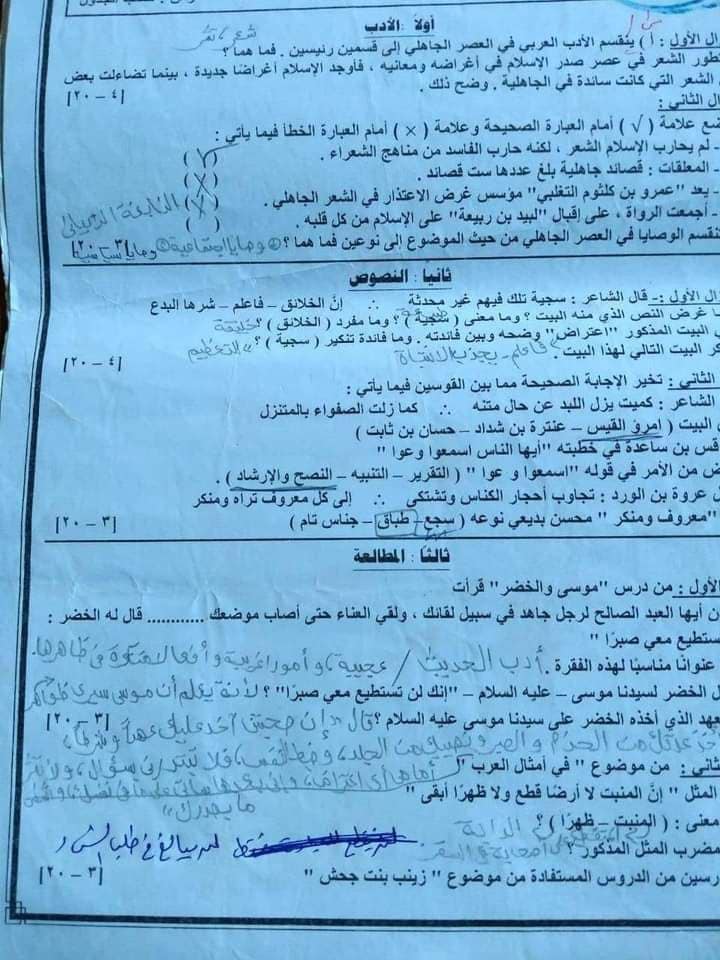 أولاً : الأدب
شعر ، نثر
ال الأول : أ ) ينقسم الأدب العربي في العصر الجاهلي إلى قسمين رئيسين . فما هما ؟
تطور الشعر في عصر صدر الإسلام في أغراضه ومعانيه ، فأوجد الإسلام أغراضا جديدة ، بينما تضاءلت بعض
الشعر التي كانت سائدة في الجاهلية . وضح ذلك .
[٤ – ٢٠]
ال الثاني :
ضع علامة ( √ ) أمام العبارة الصحيحة وعلامة ( × ) أمام العبارة الخطأ فيما يأتي :
- لم يحارب الإسلام الشعر ، لكنه حارب الفاسد من مناهج الشعراء . ( √ )
- المعلقات : قصائد جاهلية بلغ عددها ست قصائد . ( X )
- يعد "عمرو بن كلثوم التغلبي" مؤسس غرض الاعتذار في الشعر الجاهلي . ( X ) النابغة الذبياني
- أجمعت الرواة ، على إقبال "لبيد بن ربيعة" على الإسلام من كل قلبه . ( )
تنقسم الوصايا في العصر الجاهلي من حيث الموضوع إلى نوعين فما هما ؟ وصايا اجتماعية وصايا سياسية [٣ – ٢٠]
ثانياً : النصوص
ال الأول :- قال الشاعر : سجية تلك فيهم غير محدثة ∴ إنَّ الخلائق – فاعلم – شرها البدع
ما غرض النص الذي منه البيت ؟ وما معنى ( سجية ) ؟ وما مفرد ( الخلائق ) ؟ خليقة
البيت المذكور "اعتراض" وضحه وبين فائدته . وما فائدة تنكير ( سجية ) ؟ التعظيم
كر البيت التالي لهذا البيت . فاعلم - يجذب الانتباه
[٤ – ٢٠]
الثاني : تخير الإجابة الصحيحة مما بين القوسين فيما يأتي :
الشاعر : كميت يزل اللبد عن حال متنه ∴ كما زلت الصفواء بالمتنزل
البيت ( امرؤ القيس – عنترة بن شداد – حسان بن ثابت )
قس بن ساعدة في خطبته "أيها الناس اسمعوا وعوا "
ض من الأمر في قوله "اسمعوا و عوا " ( التقرير – التنبيه – النصح والإرشاد ) .
ل عروة بن الورد : تجاوب أحجار الكناس وتشتكى ∴ إلى كل معروف تراه ومنكر
"معروف ومنكر " محسن بديعي نوعه ( سجع – طباق – جناس تام )
[٣ – ٢٠]
ثالثا : المطالعة
الأول : من درس "موسى والخضر" قرأت
ن أيها العبد الصالح لرجل جاهد في سبيل لقائك ، ولقي العناء حتى أصاب موضعك ............ قال له الخضر :
تستطيع معي صبرًا "
عنوانًا مناسبًا لهذه الفقرة . أدب الحديث /
ل الخضر لسيدنا موسى – عليه السلام – "إنك لن تستطيع معي صبرًا" ؟ لأنه يعلم أن موسى سيرى
عهد الذي أخذه الخضر على سيدنا موسى عليه السلام ؟ قال
[٣ – ٢٠]
ثاني : من موضوع " في أمثال العرب "
المثل " إنَّ المنبت لا أرضا قطع ولا ظهرًا أبقى "
معنى : ( المنبت – ظهرًا ) ؟ الدابة
مضرب المثل المذكور ؟ لمن يبالغ في طلب الشئ
رسين من الدروس المستفادة من موضوع " زينب بنت جحش "
[٣ – ٢٠]